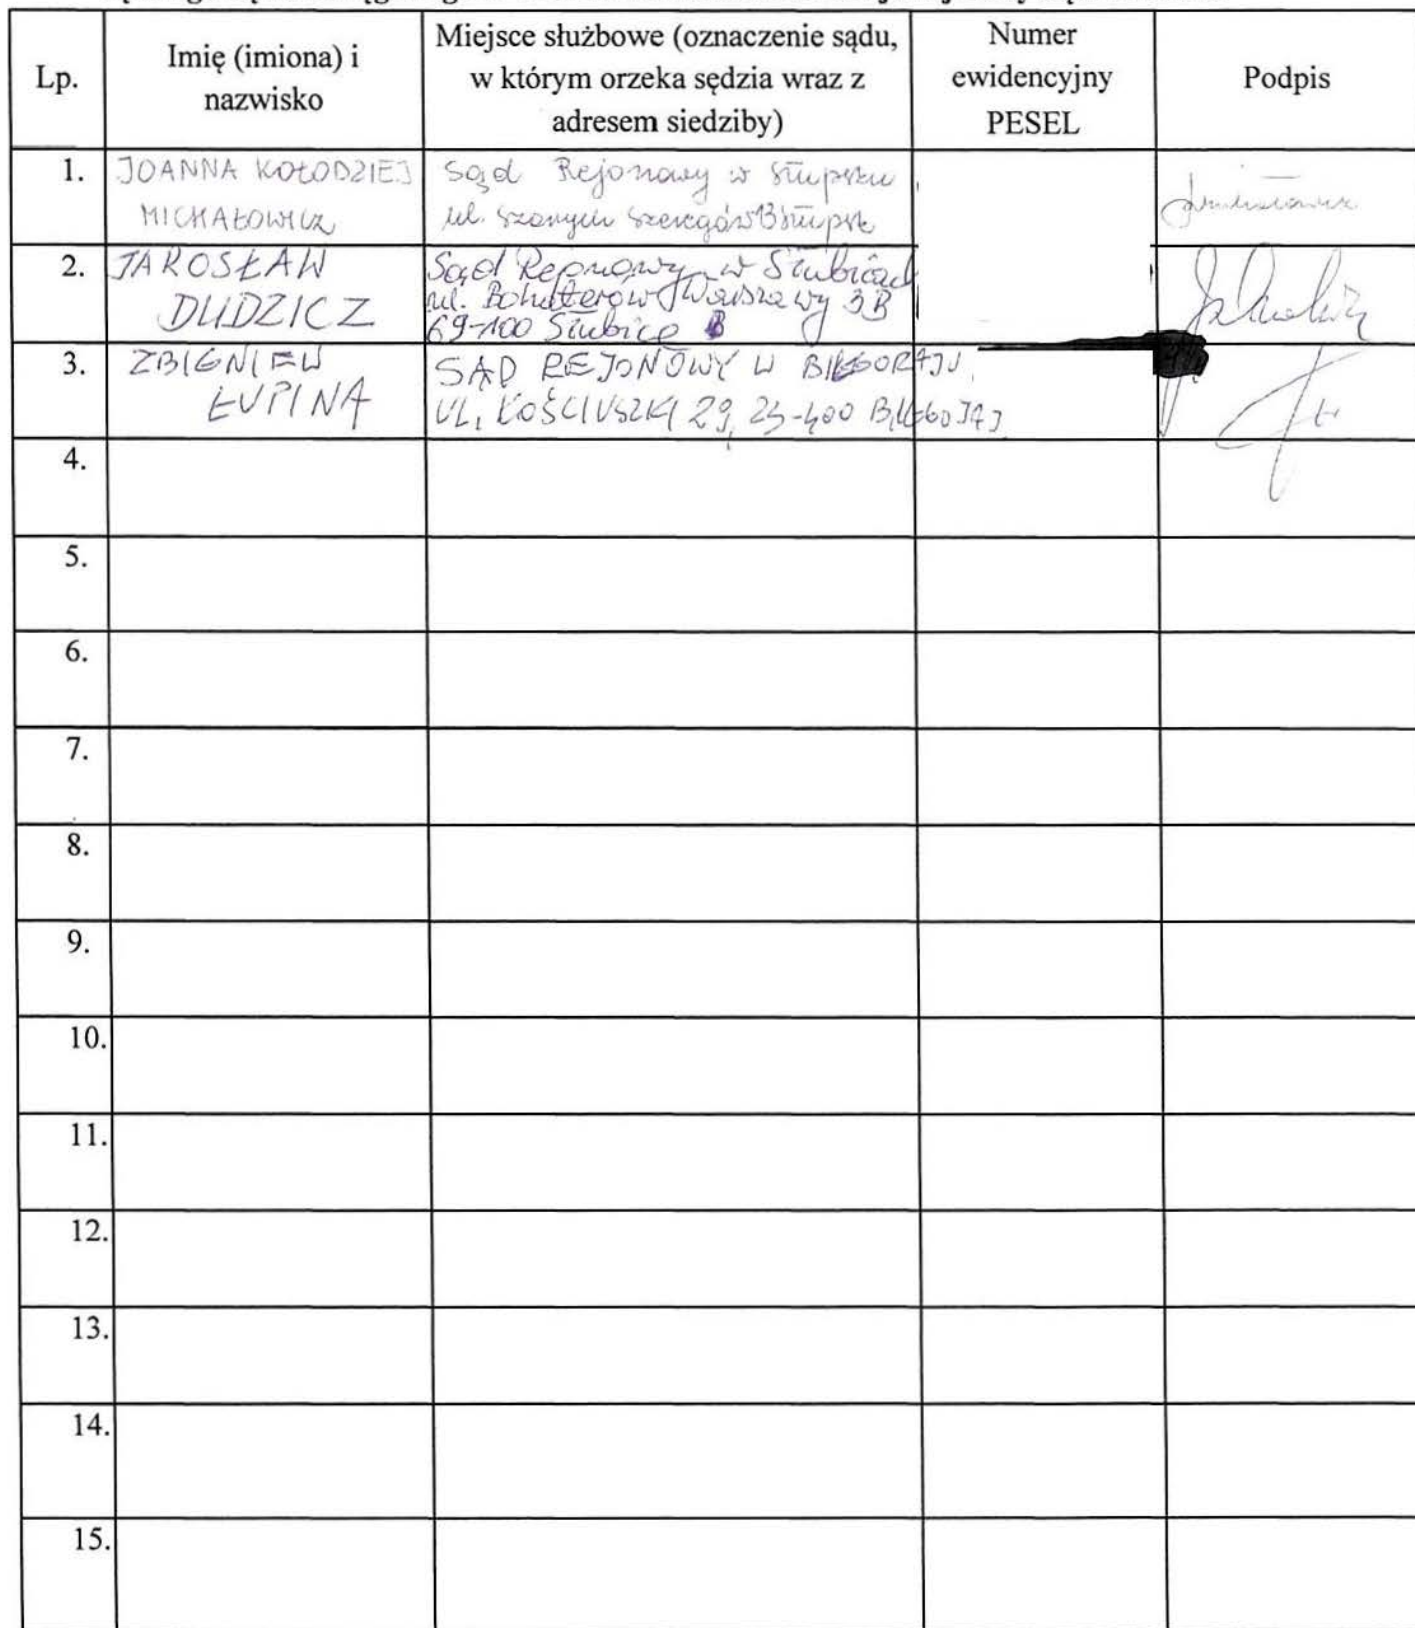 Lp.
Imię (imiona) i
nazwisko
Miejsce służbowe (oznaczenie sądu,
w którym orzeka sędzia wraz z
adresem siedziby)
Numer
ewidencyjny
PESEL
Podpis
1.
JOANNA KOŁODZIEJ
MICHAŁOWICZ
Sąd Rejonowy w Słupsku
ul. Szarych Szeregów 13 Słupsk
2.
JAROSŁAW
DUDZICZ
Sąd Rejonowy w Słubicach
ul. Bohaterów Warszawy 3B
69-100 Słubice
3.
ZBIGNIEW
ŁUPINA
SĄD REJONOWY W BIŁGORAJU
UL. KOŚCIUSZKI 29, 23-400 BIŁGORAJ
4.
5.
6.
7.
8.
9.
10.
11.
12.
13.
14.
15.